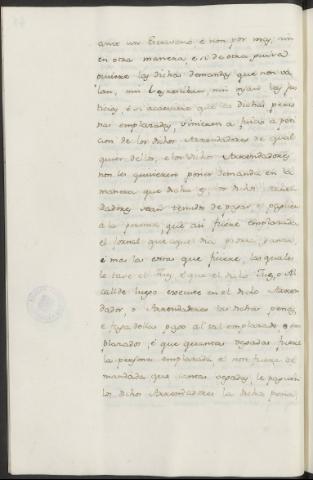 ante un Escrivano e non por mas, nin
en otra manera, e si de otra guisa
pusieren las dichas demandas que non va
lan, nin les reciban, nin oyan las jus
ticias, e si acaeciere que las dichas perso
nas emplazadas, vinieren a juicio a peti
cion de los dichos Arrendadores o de qual
quier dellos, e los dichos Arrendadores
non les quisieren poner demanda en la
manera que dicha es, los dichos Arren
dadores sean tenidos de pagar, e paguen
a la persona, que assi fuere emplazada
el jornal que aquel dia podria ganar,
e mas las costas que ficiere, las quales
le tase el Juez, e que el dicho Juez, o Al
calde luego execute en el dicho Arren
dador, o Arrendadores las dichas penas,
e faga dellas pago al tal emplazado o em
plazados; e que quantas vegadas fuere
la persona emplazada e non fuere de
mandada que tantas vegadas, le paguen
los dichos Arrendadores la dicha pena;